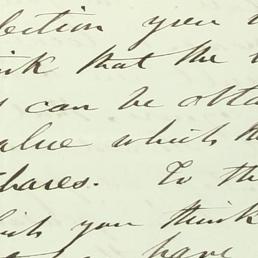 lection you
ink that the
can be obta
alue which th
shares. To th
hich you think
have